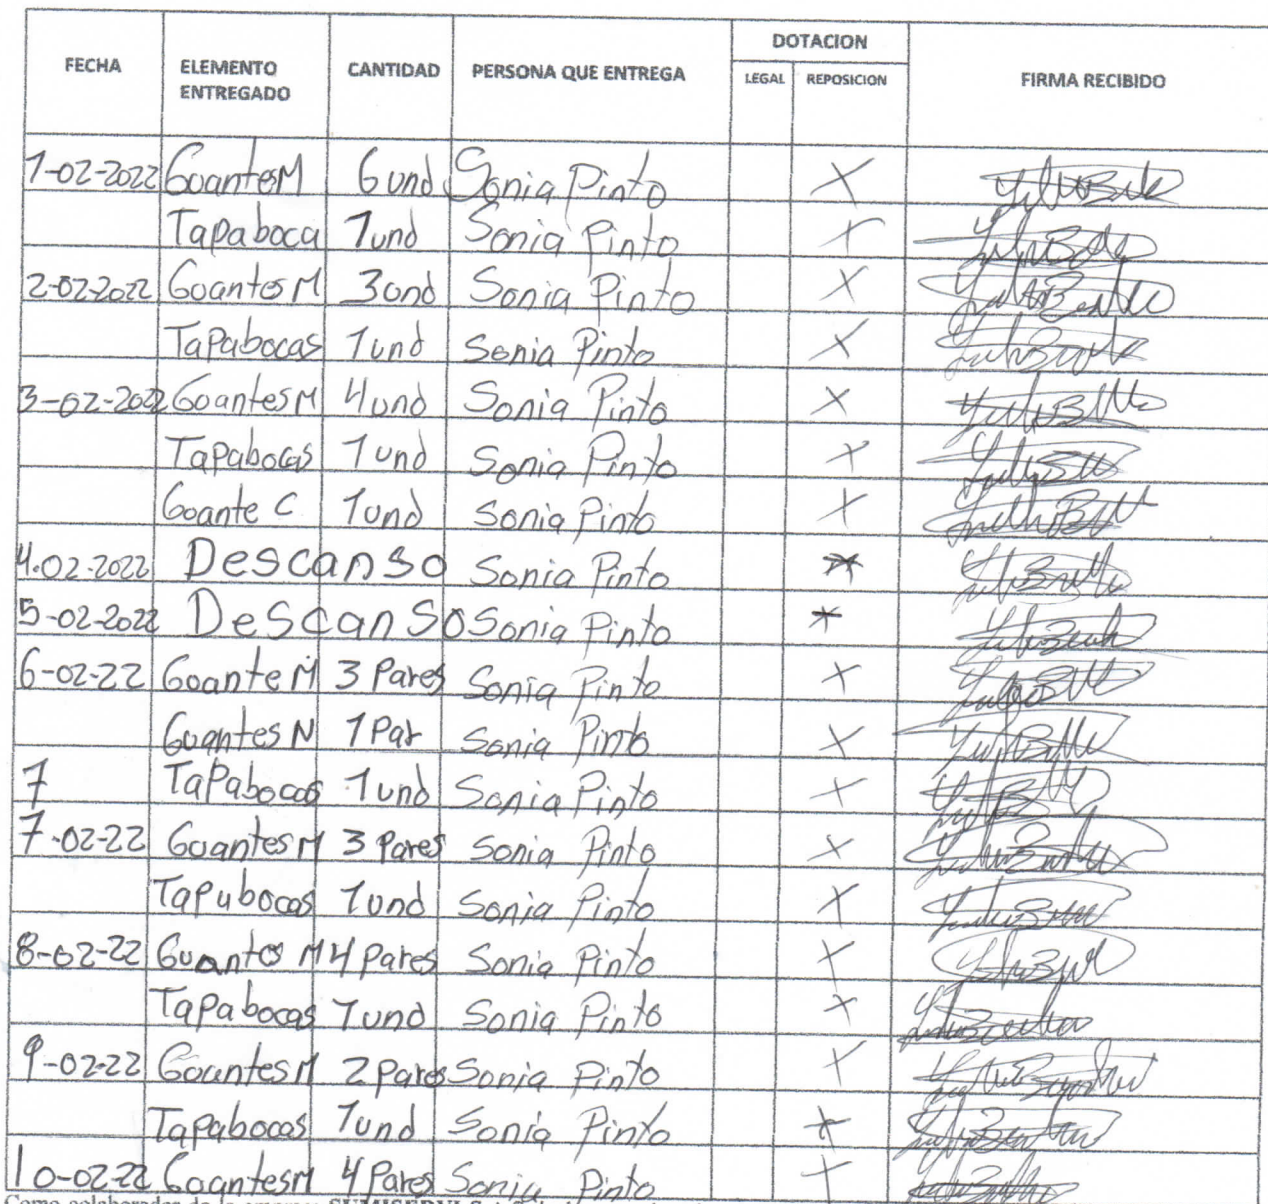 FECHA ELEMENTO ENTREGADO CANTIDAD PERSONA QUE ENTREGA DOTACION LEGAL REPOSICION FIRMA RECIBIDO
1-02-2022 Goantes M 6 und Sonia Pinto X
Tapaboca 1 und Sonia Pinto X
2-02-2022 Goantes M 3 und Sonia Pinto X
Tapabocas 1 und Sonia Pinto X
3-02-2022 Goantes M 4 und Sonia Pinto X
Tapabocas 1 und Sonia Pinto X
Goante C 1 und Sonia Pinto X
4-02-2022 Descanso Sonia Pinto X
5-02-2022 Descanso Sonia Pinto X
6-02-22 Goante M 3 Pares Sonia Pinto X
Guantes N 1 Par Sonia Pinto X
7 Tapabocas 1 und Sonia Pinto X
7-02-22 Guantes M 3 Pares Sonia Pinto X
Tapubocas 1 und Sonia Pinto X
8-02-22 Guantos M 4 Pares Sonia Pinto X
Tapabocas 1 und Sonia Pinto X
9-02-22 Goantes M 2 Pares Sonia Pinto X
Tapabocas 1 und Sonia Pinto X
10-02-22 Goantes M 4 Pares Sonia Pinto X